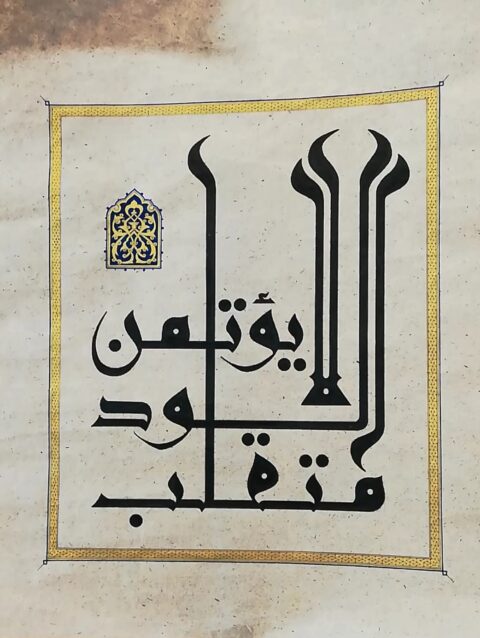 لا يؤتمن
الود
متقلب